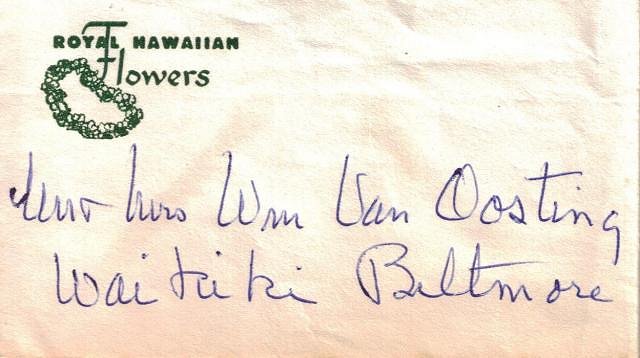 ROYAL HAWAIIAN
Flowers
Mr + Mrs Wm Van Oosting
Waikiki Biltmore